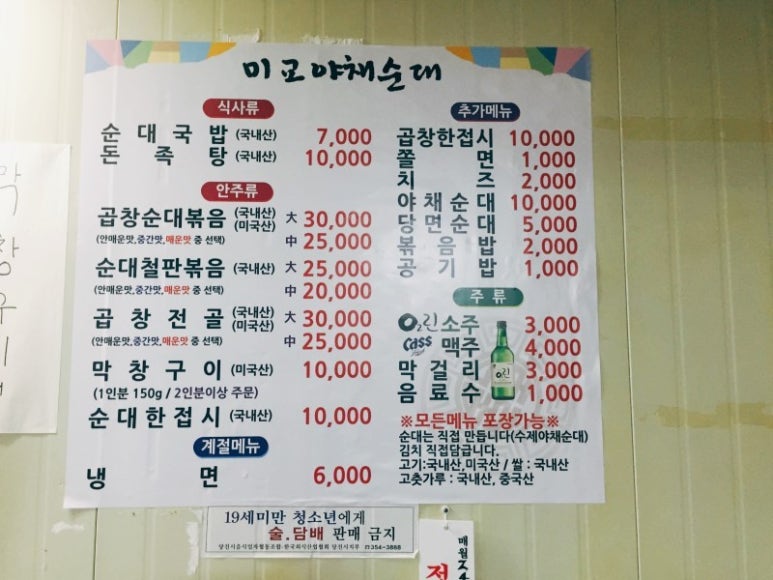 미교야채순대
식사류
순대국밥 (국내산) 7,000
돈족탕 (국내산) 10,000
안주류
곱창순대볶음 (국내산) (미국산) 大 30,000
(안매운맛,중간맛,매운맛 중 선택) 中 25,000
순대철판볶음 (국내산) 大 25,000
(안매운맛,중간맛,매운맛 중 선택) 中 20,000
곱창전골 (국내산) (미국산) 大 30,000
(안매운맛,중간맛,매운맛 중 선택) 中 25,000
막창구이 (미국산) 10,000
(1인분 150g / 2인분이상 주문)
순대한접시 (국내산) 10,000
계절메뉴
냉면 6,000
추가메뉴
곱창한접시 10,000
쫄면 1,000
치즈 2,000
야채순대 10,000
당면순대 5,000
볶음밥 2,000
공기밥 1,000
주류
O2린 소주 3,000
Cass 맥주 4,000
막걸리 3,000
음료수 1,000
※모든메뉴 포장가능※
순대는 직접 만듭니다(수제야채순대)
김치 직접담급니다.
고기:국내산,미국산 / 쌀 : 국내산
고춧가루 : 국내산, 중국산
19세미만 청소년에게
술.담배 판매 금지
☎354-3868
막
창
매월